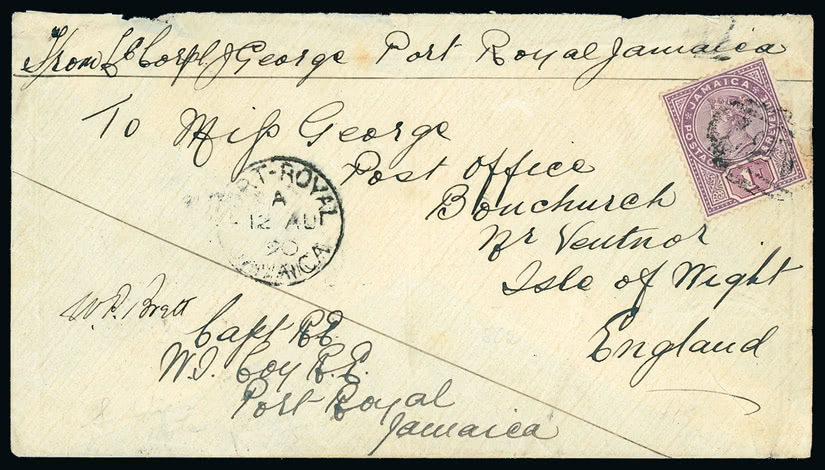 From L Corpl J George Port Royal Jamaica
To Miss George
Post Office
Bonchurch
Nr Ventnor
Isle of Wight
England
JAMAICA
POSTAGE
1D
PORT-ROYAL
A
12 AU
90
JAMAICA
W.P. Brett
Capt R.E.
W.I. Coy R.E.
Port Royal
Jamaica